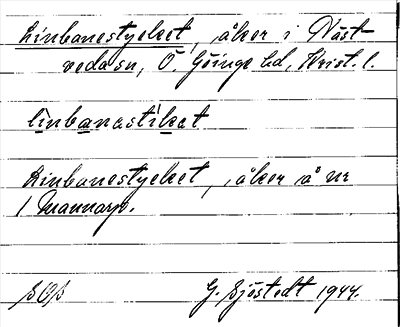 Linbanestycket, åker i Näst-
veda sn, Ö. Göinge hd, Krist. l.
linbanastikat
Linbanestycket, åker å nr
1 Mannarp.
G. Sjöstedt 1944.